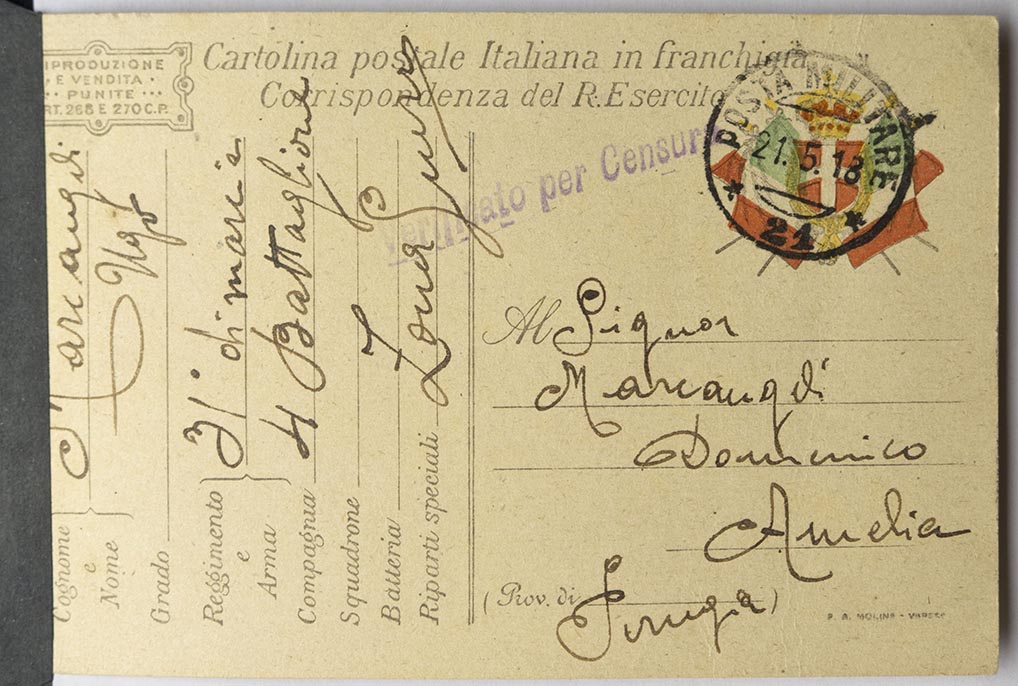 RIPRODUZIONE
E VENDITA
PUNITE
ART. 268 E 270 C.P.
Cartolina postale Italiana in franchigia
Corrispondenza del R. Esercito
Verificato per Censura
POSTA MILITARE
21.5.18
21
Cognome e Nome Marcangeli Ugo
Grado
Reggimento e Arma 3° di marcia
Compagnia 4 Battaglione
Squadrone
Batteria
Riparti speciali Zona Guerra
Al Signor
Marcangeli
Domenico
Amelia
(Prov. di Perugia)
F. A. MOLINA - VARESE